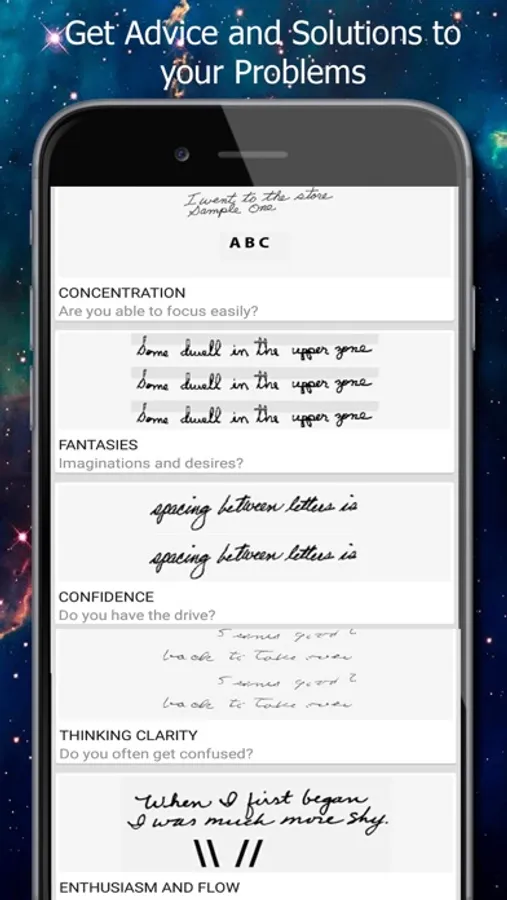 Get Advice and Solutions to
your Problems
I went to the store
Sample One
ABC
CONCENTRATION
Are you able to focus easily?
Some dwell in the upper zone
Some dwell in the upper zone
Some dwell in the upper zone
FANTASIES
Imaginations and desires?
spacing between letters is
spacing between letters is
CONFIDENCE
Do you have the drive?
good
back to take over
good
back to take over
THINKING CLARITY
Do you often get confused?
When I first began
I was much more shy.
\\ //
ENTHUSIASM AND FLOW